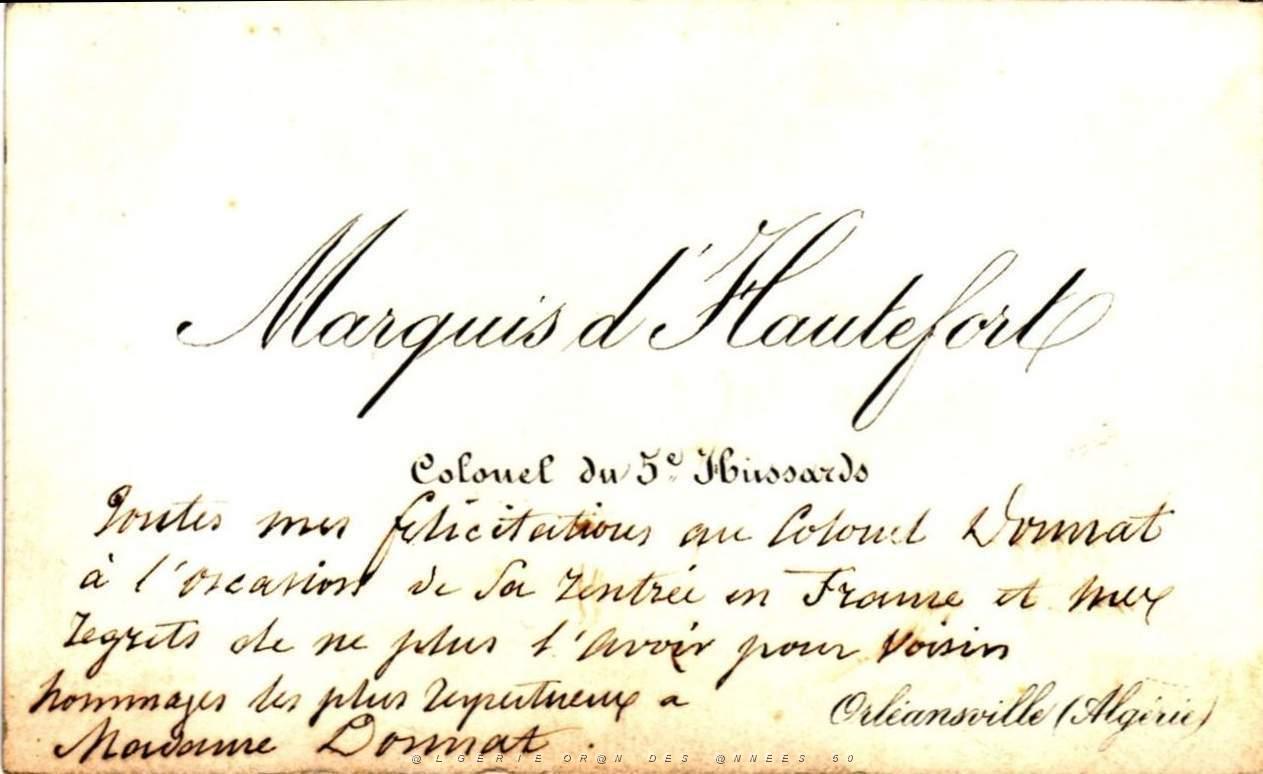 Marquis d'Hautefort
Colonel du 5e Hussards
Toutes mes félicitations au Colonel Donnat
à l'occasion de sa rentrée en France et mes
regrets de ne plus l'avoir pour voisin
hommages les plus respectueux à
Madame Donnat.
Orléansville (Algérie)
@LGÉRIE OR@N DES @NNEES 50